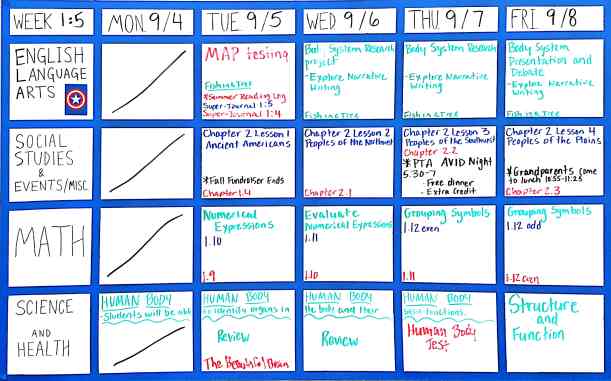 WEEK 1:5
MON 9/4
TUE 9/5
WED 9/6
THU 9/7
FRI 9/8
ENGLISH
LANGUAGE
ARTS
MAP testing
Fishing Tree
*Summer Reading Log
Super-Journal 1:5
Super-Journal 1:4
Body System Research
project
-Explore Narrative
Writing
Fishing Tree
Body System Research
-Explore Narrative
Writing
Fishing Tree
Body System
Presentation and
Debate
-Explore Narrative
Writing
Fishing Tree
SOCIAL
STUDIES
&
EVENTS/MISC
Chapter 2 Lesson 1
Ancient Americans
*Fall Fundraiser Ends
Chapter 1.4
Chapter 2 Lesson 2
Peoples of the Northwest
Chapter 2.1
Chapter 2 Lesson 3
Peoples of the Southwest
Chapter 2.2
*PTA AVID Night
5:30-7
- Free dinner
- Extra Credit
Chapter 2 Lesson 4
Peoples of the Plains
*Grandparents come
to lunch 10:55-11:25
Chapter 2.3
MATH
Numerical
Expressions
1.10
1.9
Evaluate
Numerical Expressions
1.11
1.10
Grouping Symbols
1.12 even
1.11
Grouping Symbols
1.12 odd
1.12 even
SCIENCE
AND
HEALTH
HUMAN BODY
-Students will be able
HUMAN BODY
to identify organs in
Review
The Beautiful Brain
HUMAN BODY
the body and their
Review
HUMAN BODY
basic functions.
Human Body
Test
Structure
and
Function